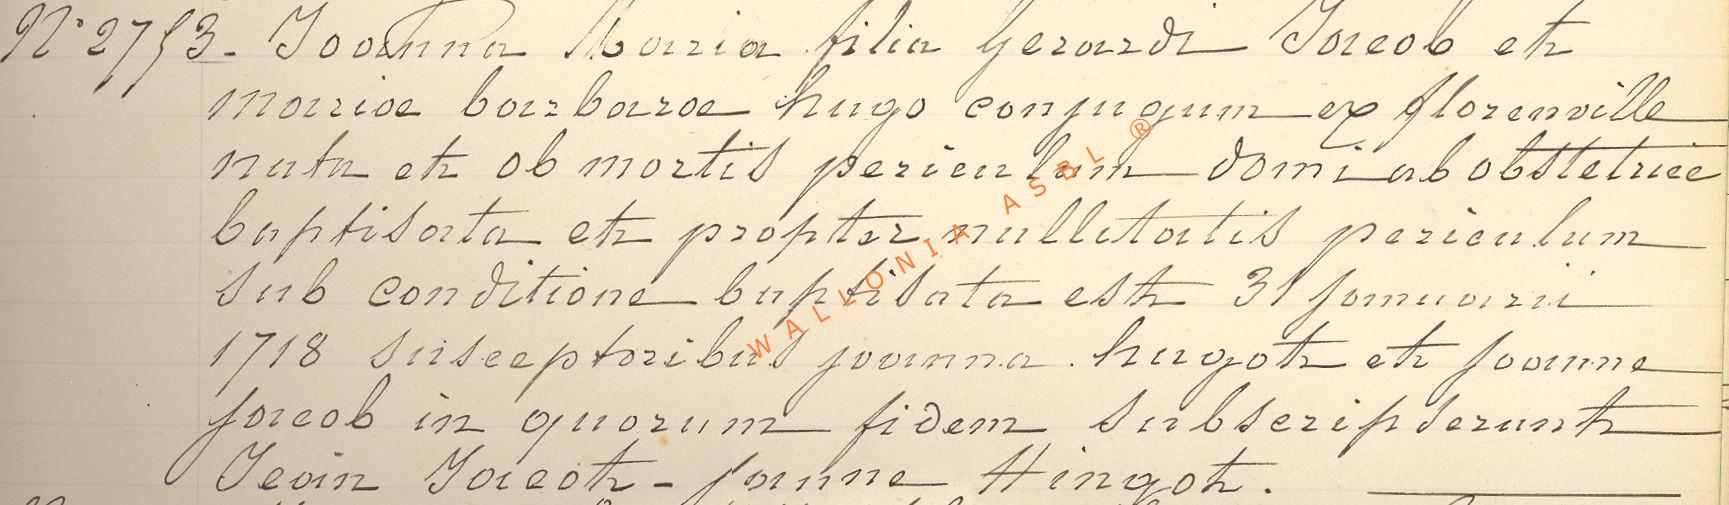 N° 2753_ Joanna Maria filia Gerardi Jacob et
mariae barbarae hugo conjugum ex florenville
nata et ob mortis periculum domi ab obstetrice
baptisata et propter nullitatis periculum
sub conditione baptisata est 31 januarii
1718 susceptoribus joanna hugot et joanne
jacob in quorum fidem subscripserunt
Jean Jacot - jeanne Hingot.
WALLONIA ASBL ®